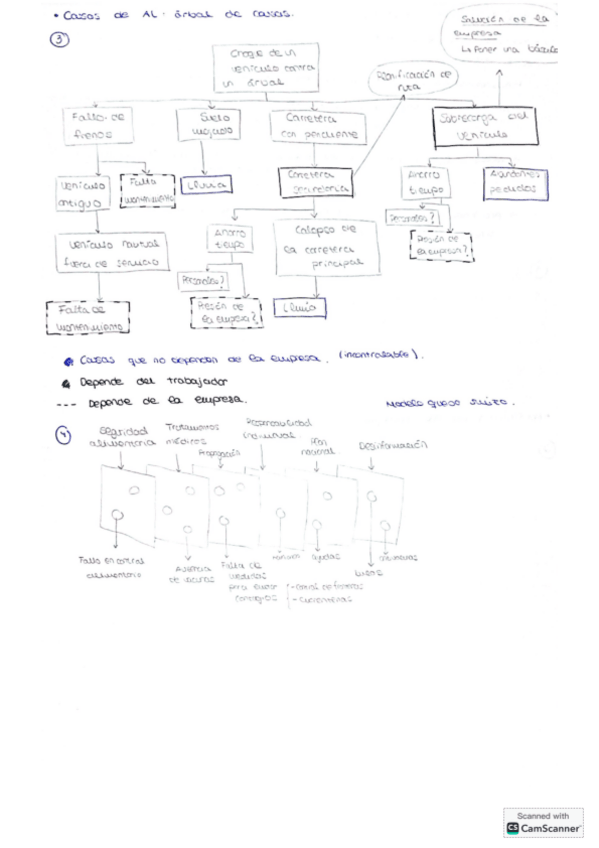 • Casos de AL. árbol de causas.
Solución de la
empresa
↳ Poner una báscula
3
Choque de un
vehículo contra
un árbol
Planificación de
ruta
Fallo de
frenos
Suelo
mojado
Carretera
con pendiente
Sobrecarga del
vehículo
Vehículo
antiguo
Falta
mantenimiento
Lluvia
Carretera
secundaria
Ahorro
tiempo
Vehículo habitual
fuera de servicio
Ahorro
tiempo
Colapso de
la carretera
principal
Personales?
Presión de
la empresa?
Falta de
mantenimiento
Personales?
Presión de
la empresa?
Lluvia
Causas que no dependen de la empresa. (incontrolable).
Depende del trabajador
--- Depende de la empresa.
Modelo queso suizo.
4
Seguridad
alimentaria
Tratamientos
médicos
Propagación
Responsabilidad
individual
Plan
nacional
Desinformación
Fallo en control
alimentario
Ausencia
de vacunas
Falta de
medidas
para evitar
contagios
ayudas
- control de fronteras
- cuarentenas
bulos
Scanned with
CS CamScanner